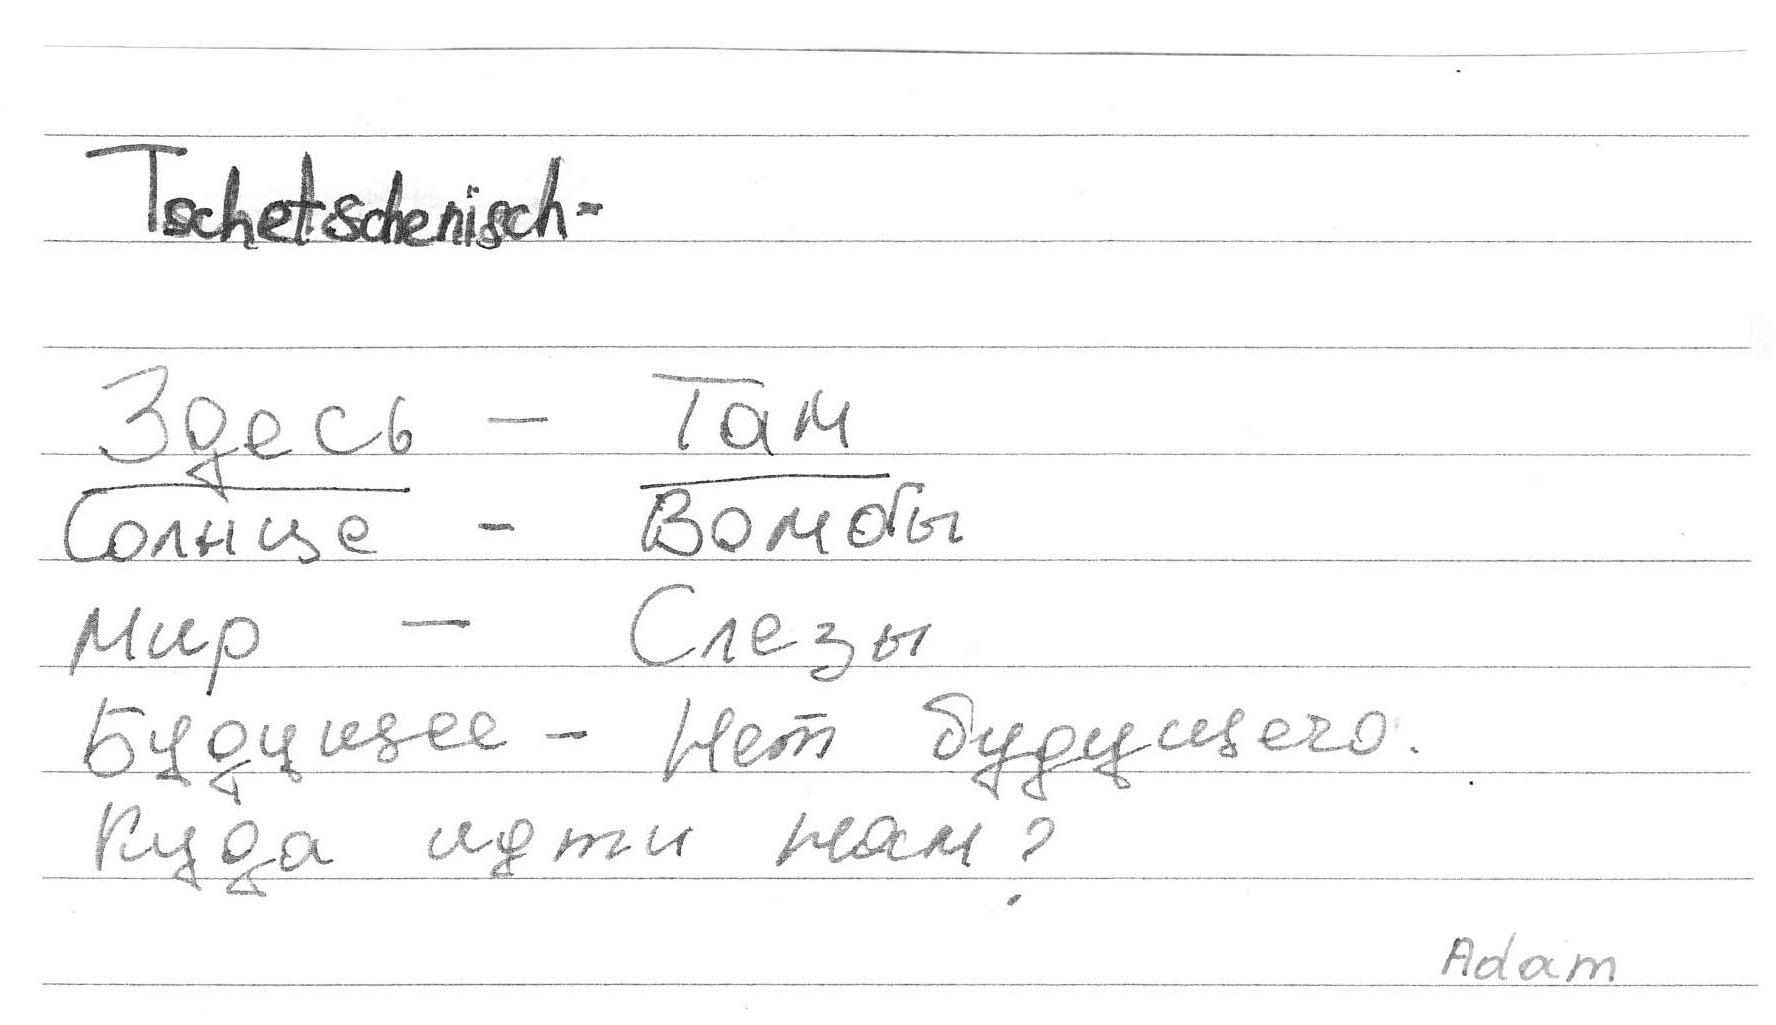 Tschetschenisch-
Здесь – Там
Солнце - Вомобы
Мир – Слезы
Будущее - Нет будущего.
Куда идти нам?
Adam